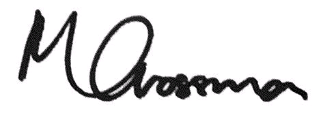 M Grossman